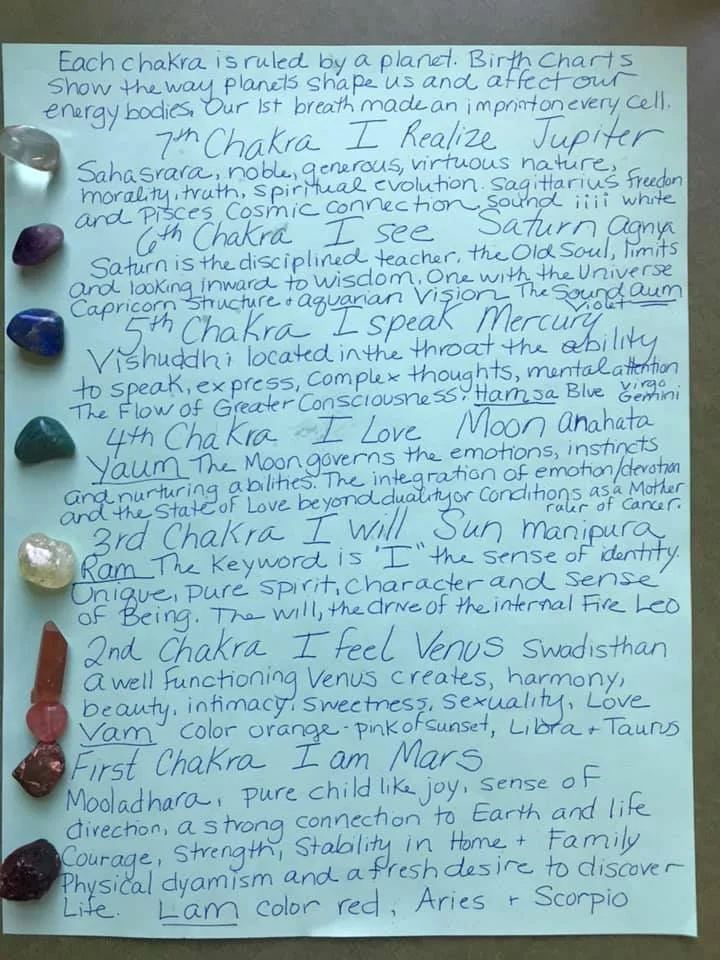 Each chakra is ruled by a planet. Birth Charts
show the way planets shape us and affect our
energy bodies. Our 1st breath made an imprint on every cell.
7th Chakra I Realize Jupiter
Sahasrara, noble, generous, virtuous nature,
morality, truth, spiritual evolution. Sagittarius freedom
and Pisces Cosmic connection, sound iiii white
6th Chakra I see Saturn Agnya
Saturn is the disciplined teacher, the Old Soul, limits
and looking inward to wisdom, One with the Universe
Capricorn structure + aquarian Vision The Sound aum
Violet
5th Chakra I speak Mercury
Vishuddhi located in the throat the ability
to speak, express, complex thoughts, mental attention
The Flow of Greater Consciousness. Hamsa Blue Virgo
Gemini
4th Chakra I Love Moon Anahata
Yaum The Moon governs the emotions, instincts
and nurturing abilities. The integration of emotion/devotion
and the State of Love beyond duality or conditions as a Mother
ruler of Cancer.
3rd Chakra I will Sun manipura
Ram The Keyword is "I" the sense of identity.
Unique, pure spirit, Character and sense
of Being. The will, the drive of the internal Fire Leo
2nd Chakra I feel Venus Swadisthan
a well functioning Venus creates, harmony,
beauty, intimacy, sweetness, sexuality, Love
Vam color orange - pink of sunset, Libra + Taurus
First Chakra I am Mars
Mooladhara, pure child like joy, sense of
direction, a strong connection to Earth and life
Courage, Strength, Stability in Home + Family
Physical dyamism and a fresh desire to discover
Life. Lam color red, Aries + Scorpio